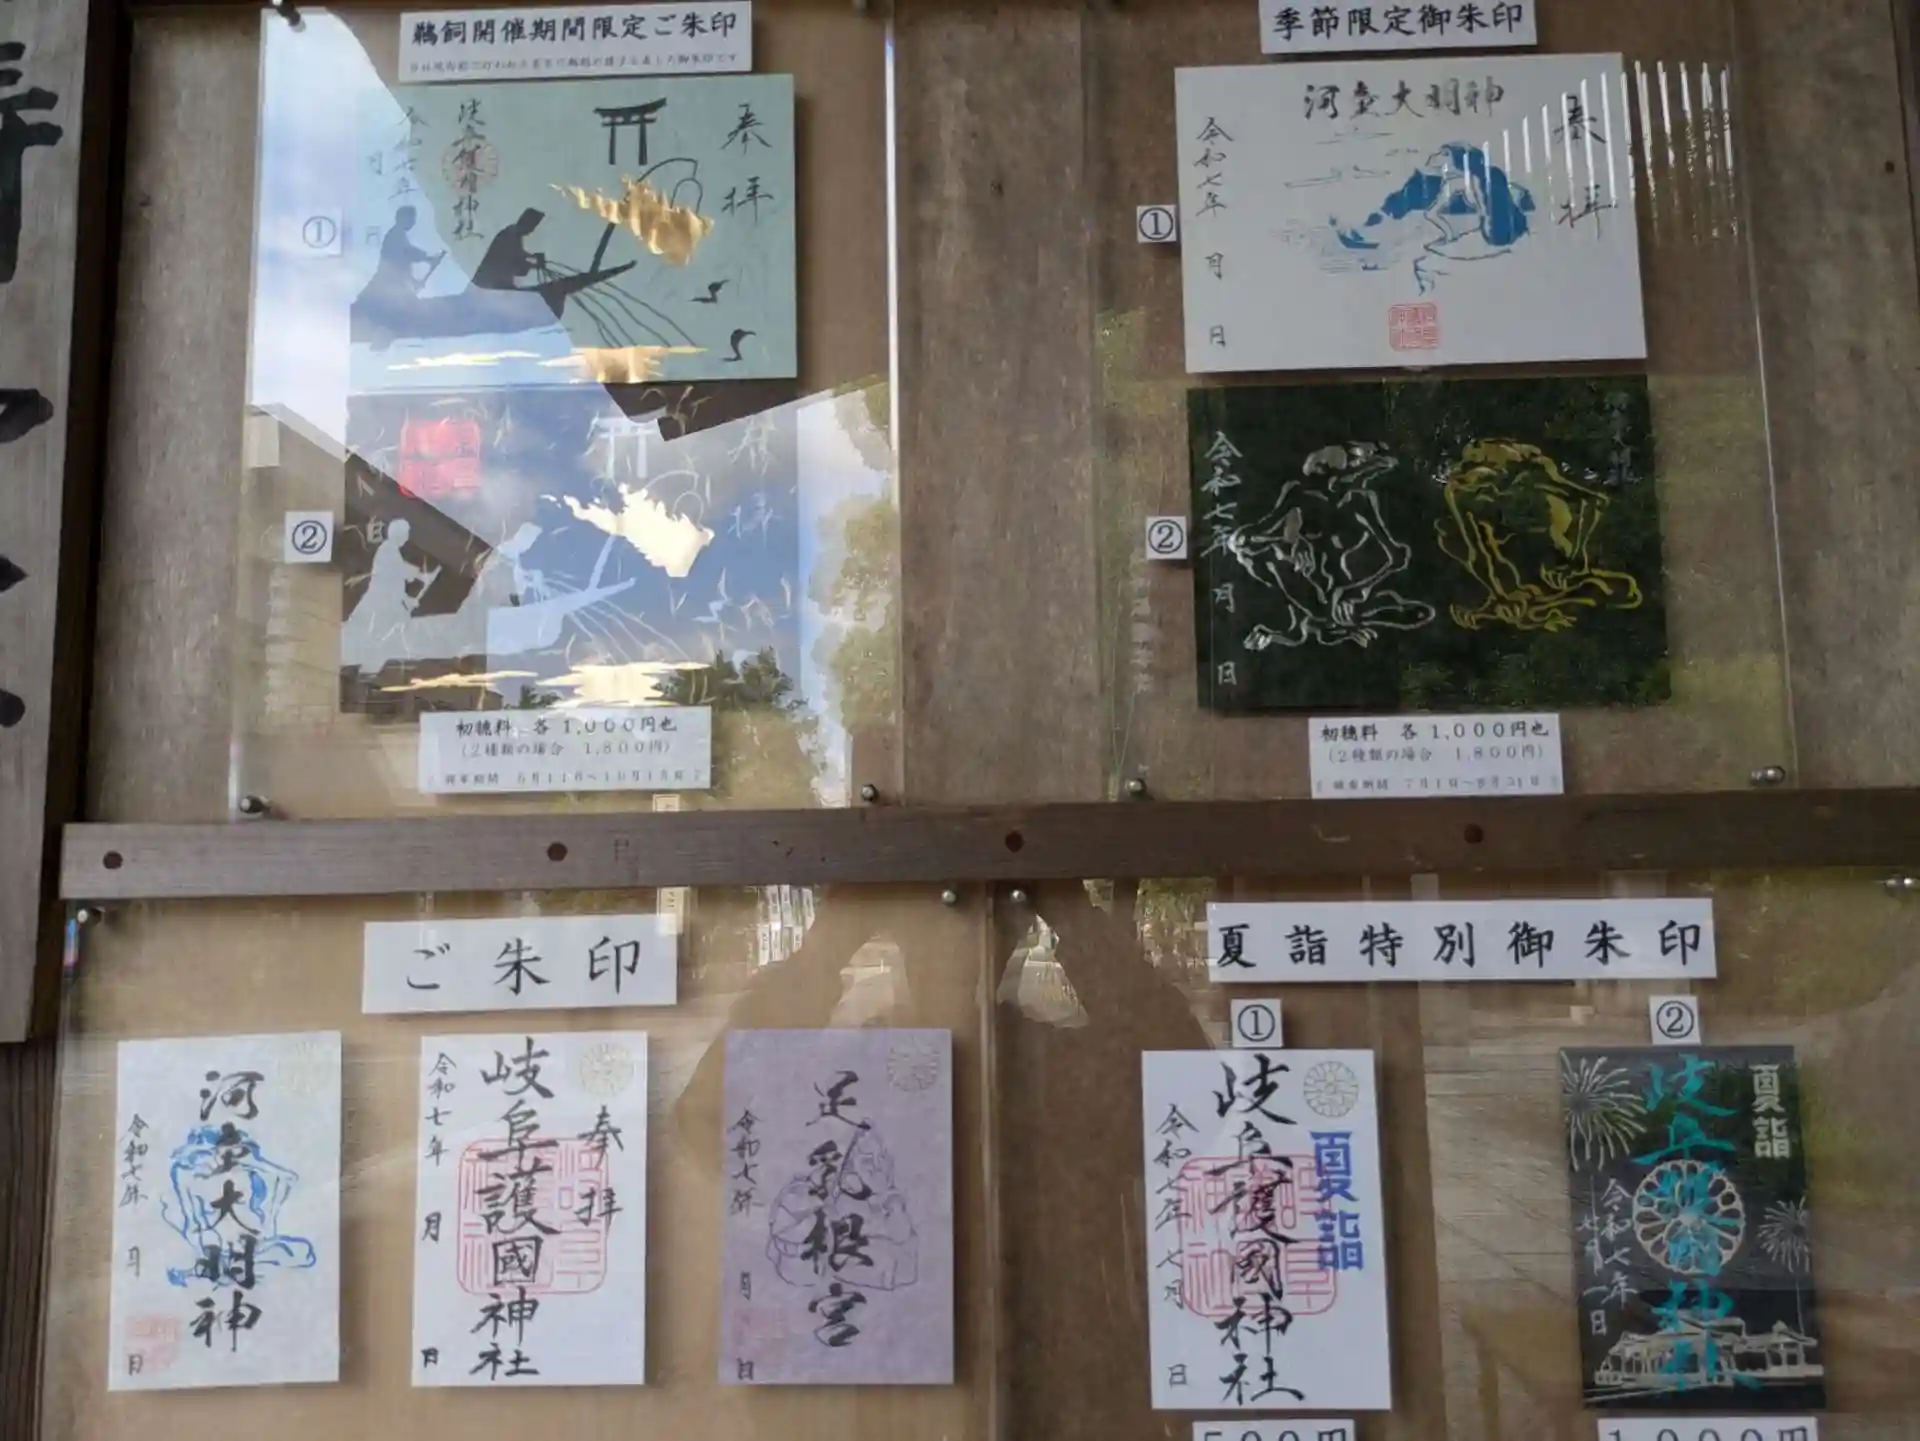 鵜飼開催期間限定ご朱印
奉拝
岐阜護國神社
令和七年
月
日
①
②
初穂料 各1,000円也
(2種類の場合 1,800円)
季節限定御朱印
河童大明神
奉拝
令和七年
月
日
①
令和七年
月
日
②
初穂料 各1,000円也
(2種類の場合 1,800円)
頒布期間 7月1日~8月31日
ご朱印
河童大明神
令和七年
月
日
奉拝
岐阜護國神社
令和七年
月
日
足乳根宮
令和七年
月
日
夏詣特別御朱印
①
夏詣
岐阜護國神社
令和七年七月
日
500円
②
夏詣
岐阜護國神社
令和七年
七月一日
1000円